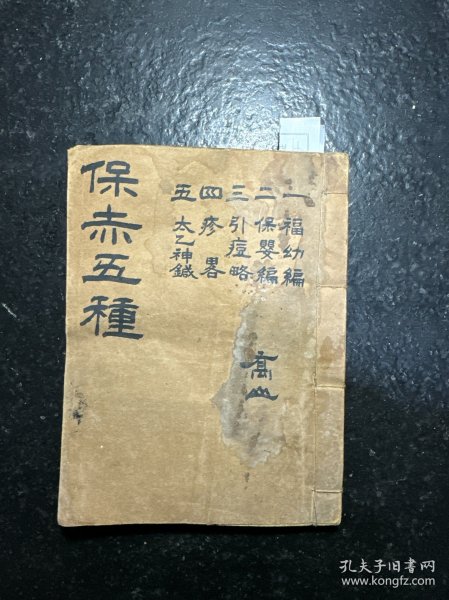 保赤五種
一福幼編
二保嬰編
三引痘略
四疹畧
五太乙神鍼
高山
孔夫子旧书网
www.kongfz.com